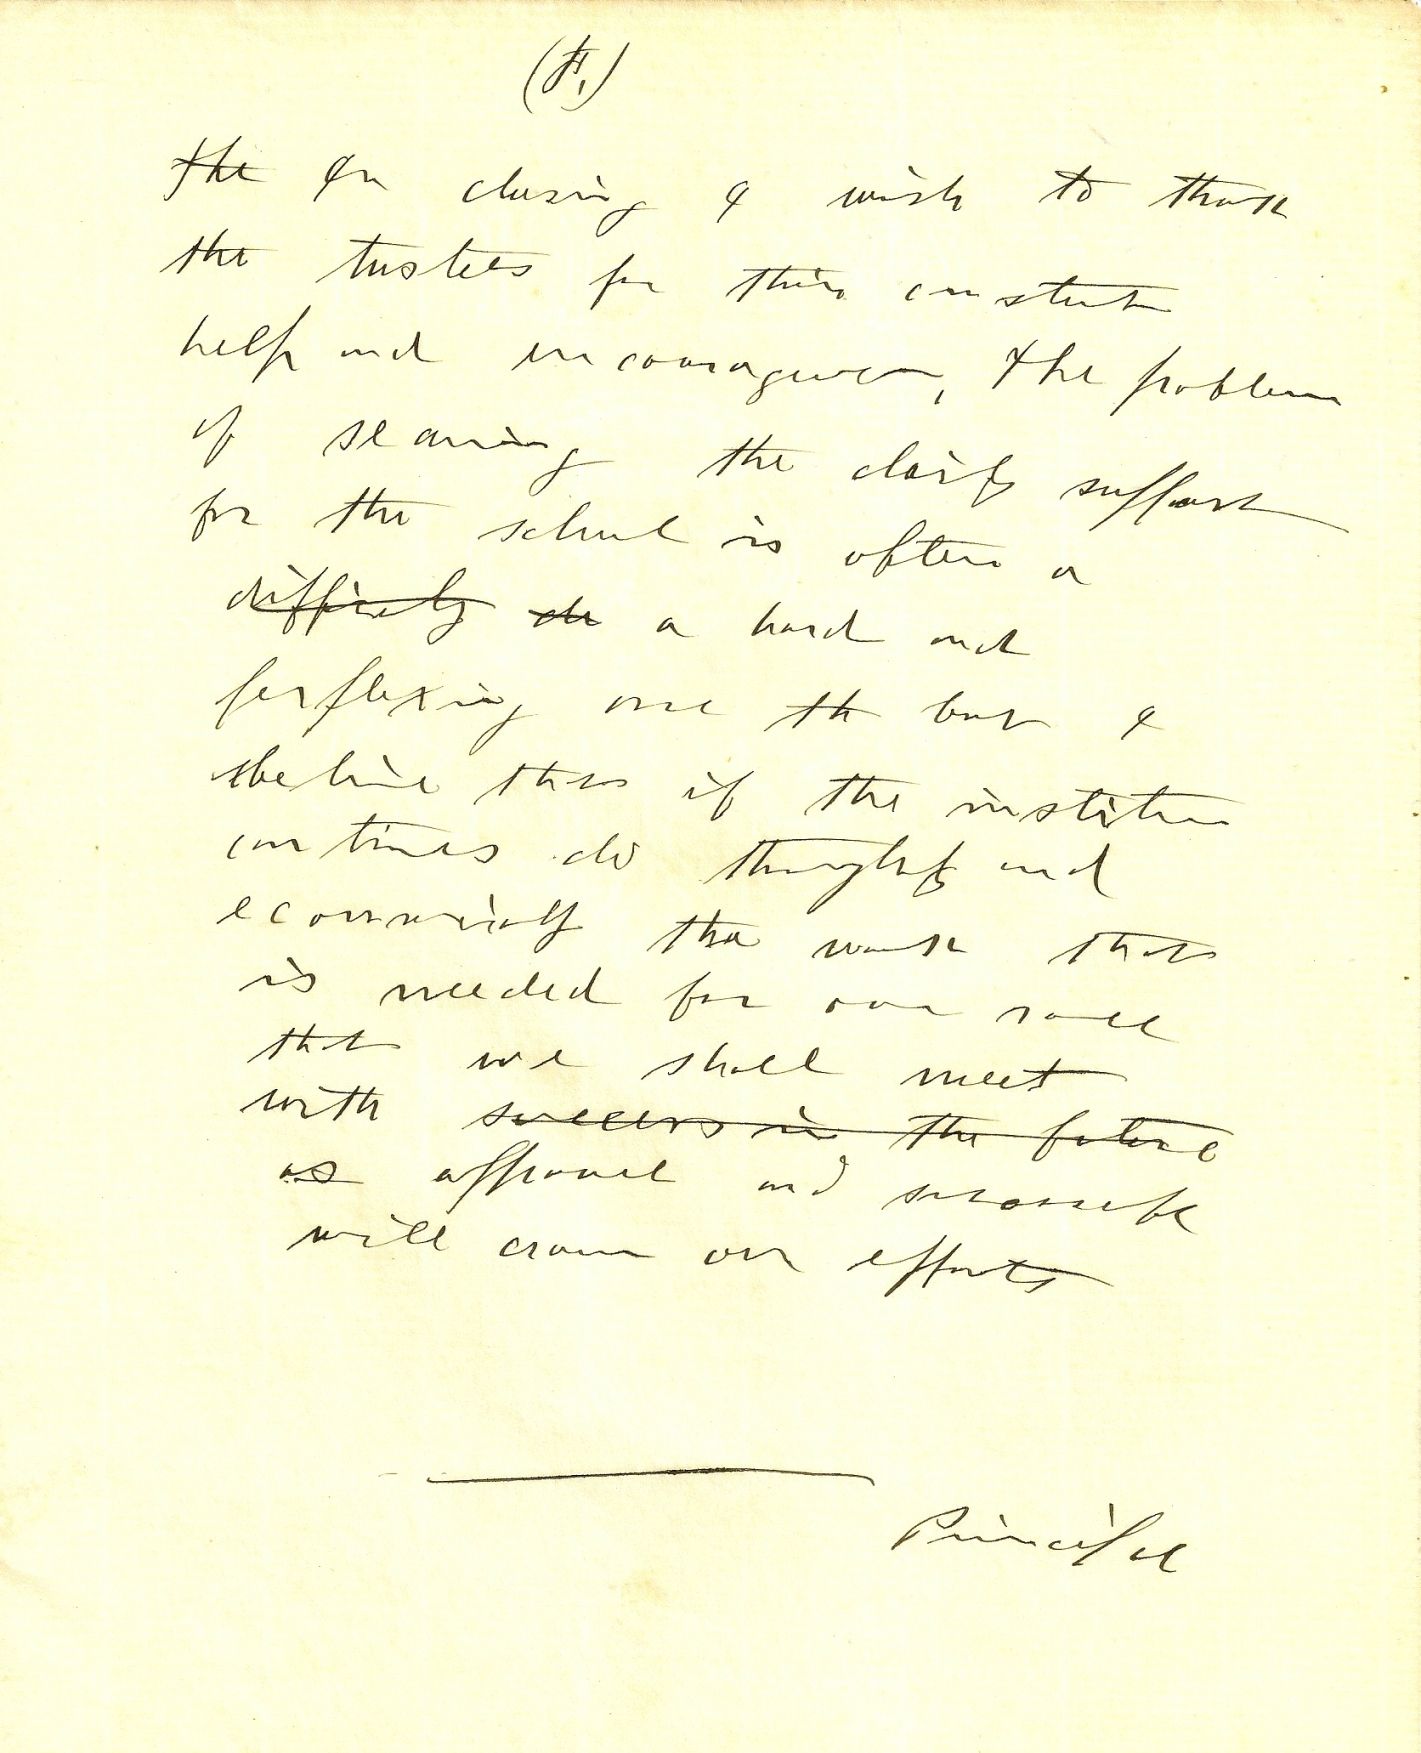 (F.)
The In closing I wish to thank
the trustees for their constant
help and encouragement, The problem
of securing the daily support
for the school is often a
difficulty de a hard and
perplexing one th but I
believe that if the institution
continues do thoughtfully and
economically the work that
is needed for our race
that we shall meet
with success in the future
as approval and success
will crown our efforts
Principal